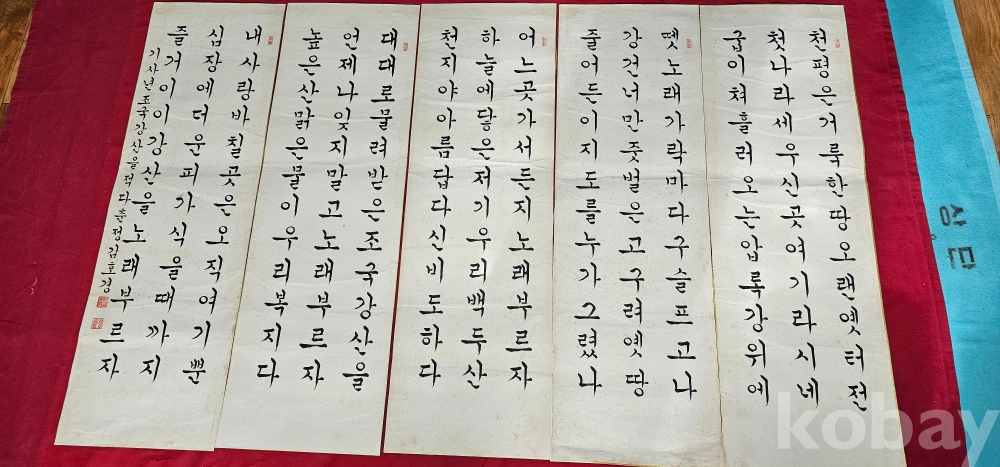 천평은거룩한땅오랜옛터전
첫나라세우신곳여기라시네
굽이쳐흘러오는압록강위에
뗏노래가락마다구슬프고나
강건너만줏벌은고구려옛땅
줄어든이지도를누가그렸나
어느곳가서든지노래부르자
하늘에닿은저기우리백두산
천지야아름답다신비도하다
대대로물려받은조국강산을
언제나잊지말고노래부르자
높은산맑은물이우리복지다
내사랑바칠곳은오직여기뿐
심장에더운피가식을때까지
즐거이이강산을노래부르자
기사년조국강산을적다춘정김호경
상단
kobay